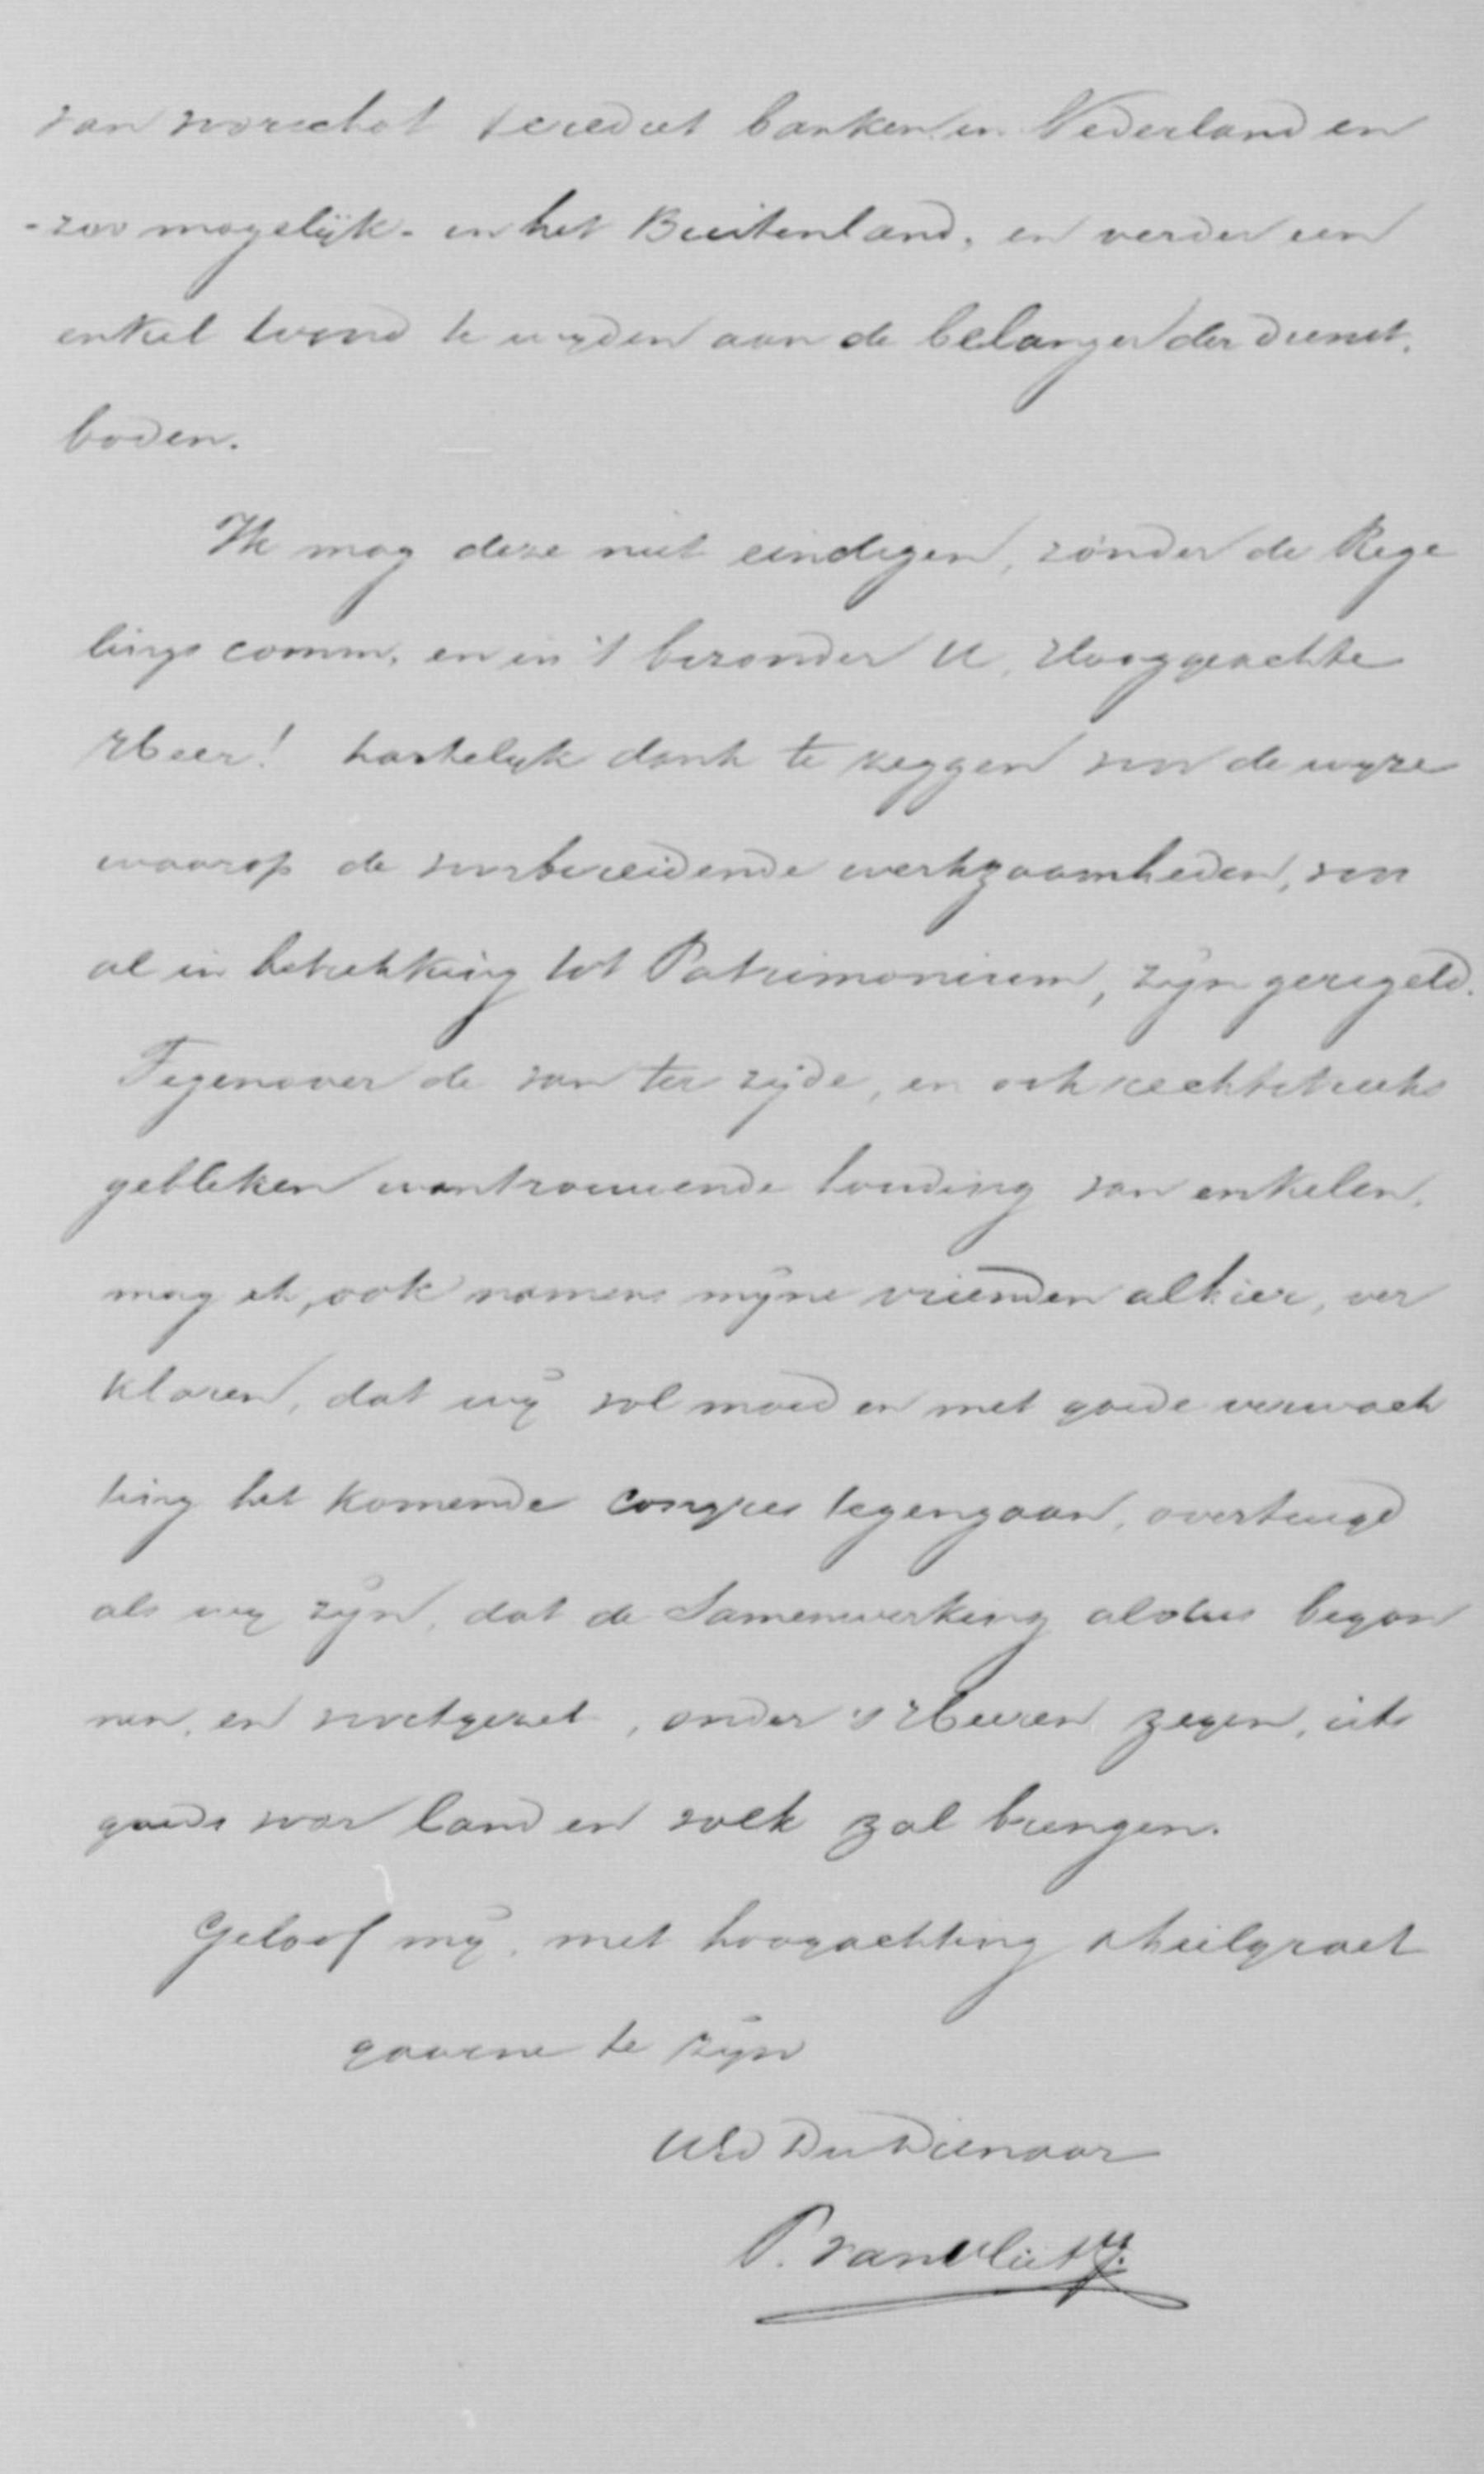 van voorschot & crediet banken in Nederland en
- zoo mogelijk - in het Buitenland, en verder een
enkel woord te wijden aan de belangen der dienst.
boden.
Ik mag deze niet eindigen, zonder de Rege
lings comm. en in 't bizonder U, Hooggeachte
Heer! hartelijk dank te zeggen voor de wijze
waarop de voorbereidende werkzaamheden, voor
al in betrekking tot Patrimonium, zijn geregeld.
Tegenover de van ter zijde, en ook rechtstreeks
gebleken wantrouwende houding van enkelen,
mag ik, ook namens mijne vrienden alhier, ver
klaren, dat wij vol moed en met goede verwach
ting het komende congres tegengaan, overtuigd
als wij zijn, dat de Samenwerking aldus begon
nen, en voortgezet, onder 's Heeren zegen, iets
goeds voor land en volk zal brengen.
Geloof mij, met hoogachting & heilgroet
gaarne te zijn
UEd Dw Dienaar
P. van Vliet Jr.